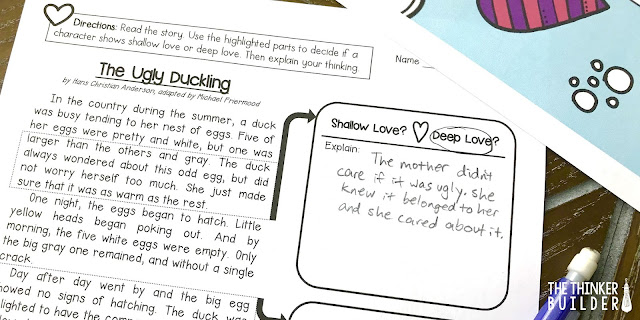 Directions: Read the story. Use the highlighted parts to decide if a
character shows shallow love or deep love. Then explain your thinking.
Name
The Ugly Duckling
by Hans Christian Anderson, adapted by Michael Friermood
In the country during the summer, a duck
was busy tending to her nest of eggs. Five of
her eggs were pretty and white, but one was
larger than the others and gray. The duck
always wondered about this odd egg, but did
not worry herself too much. She just made
sure that it was as warm as the rest.
One night, the eggs began to hatch. Little
yellow heads began poking out. And by
morning, the five white eggs were empty. Only
the big gray one remained, and without a single
crack.
Day after day went by and the big egg
howed no signs of hatching. The duck was
lighted to have the
Shallow Love? Deep Love?
Explain:
The mother didn't
care if it was ugly. She
knew it belonged to her
and she cared about it.
THE THINKER
BUILDER